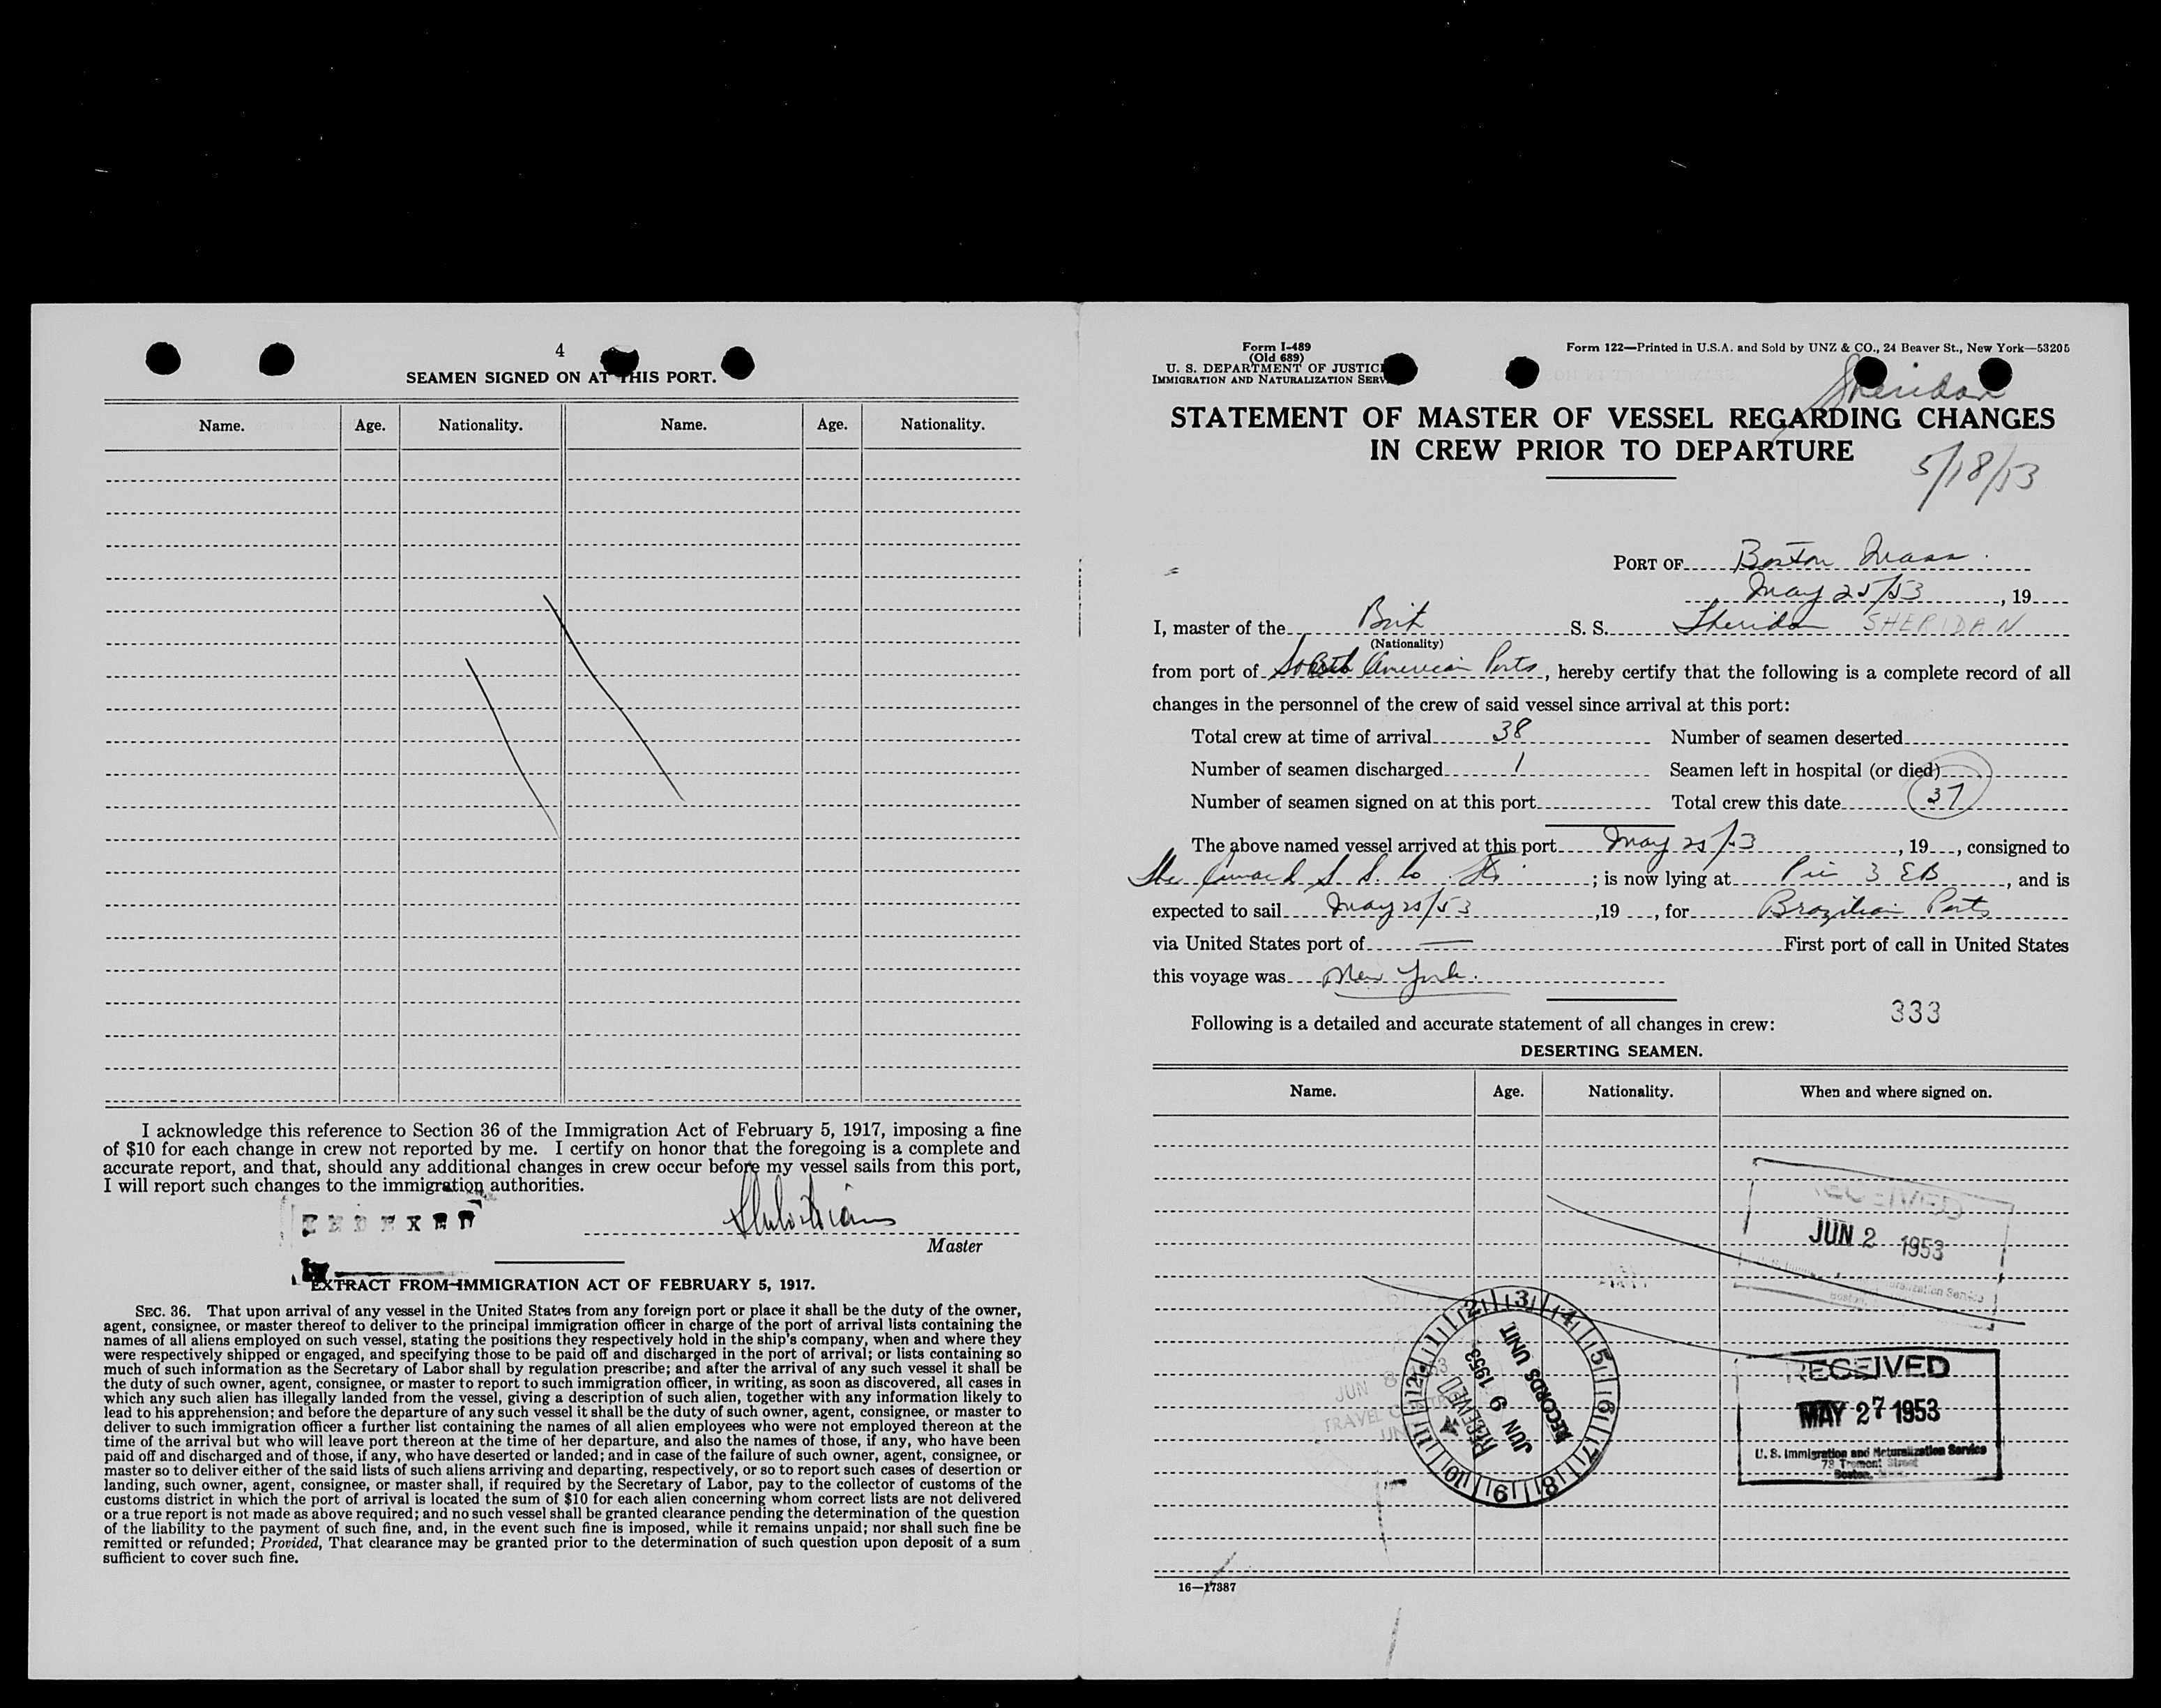 4
SEAMEN SIGNED ON AT THIS PORT.
Name. Age. Nationality. Name. Age. Nationality.
I acknowledge this reference to Section 36 of the Immigration Act of February 5, 1917, imposing a fine
of $10 for each change in crew not reported by me. I certify on honor that the foregoing is a complete and
accurate report, and that, should any additional changes in crew occur before my vessel sails from this port,
I will report such changes to the immigration authorities.
INDEXED
Master
EXTRACT FROM IMMIGRATION ACT OF FEBRUARY 5, 1917.
SEC. 36. That upon arrival of any vessel in the United States from any foreign port or place it shall be the duty of the owner,
agent, consignee, or master thereof to deliver to the principal immigration officer in charge of the port of arrival lists containing the
names of all aliens employed on such vessel, stating the positions they respectively hold in the ship's company, when and where they
were respectively shipped or engaged, and specifying those to be paid off and discharged in the port of arrival; or lists containing so
much of such information as the Secretary of Labor shall by regulation prescribe; and after the arrival of any such vessel it shall be
the duty of such owner, agent, consignee, or master to report to such immigration officer, in writing, as soon as discovered, all cases in
which any such alien has illegally landed from the vessel, giving a description of such alien, together with any information likely to
lead to his apprehension; and before the departure of any such vessel it shall be the duty of such owner, agent, consignee, or master to
deliver to such immigration officer a further list containing the names of all alien employees who were not employed thereon at the
time of the arrival but who will leave port thereon at the time of her departure, and also the names of those, if any, who have been
paid off and discharged and of those, if any, who have deserted or landed; and in case of the failure of such owner, agent, consignee, or
master so to deliver either of the said lists of such aliens arriving and departing, respectively, or so to report such cases of desertion or
landing, such owner, agent, consignee, or master shall, if required by the Secretary of Labor, pay to the collector of customs of the
customs district in which the port of arrival is located the sum of $10 for each alien concerning whom correct lists are not delivered
or a true report is not made as above required; and no such vessel shall be granted clearance pending the determination of the question
of the liability to the payment of such fine, and, in the event such fine is imposed, while it remains unpaid; nor shall such fine be
remitted or refunded; Provided, That clearance may be granted prior to the determination of such question upon deposit of a sum
sufficient to cover such fine.
Form I-489
(Old 689)
U. S. DEPARTMENT OF JUSTICE
IMMIGRATION AND NATURALIZATION SERV
Form 122—Printed in U.S.A. and Sold by UNZ & CO., 24 Beaver St., New York—53205
Sheridan
STATEMENT OF MASTER OF VESSEL REGARDING CHANGES
IN CREW PRIOR TO DEPARTURE
5/18/53
PORT OF Boston Mass.
May 25/53, 19
I, master of the Brit S. S. Sheridan SHERIDAN
(Nationality)
from port of South American Ports, hereby certify that the following is a complete record of all
changes in the personnel of the crew of said vessel since arrival at this port:
Total crew at time of arrival 38 Number of seamen deserted
Number of seamen discharged 1 Seamen left in hospital (or died)
Number of seamen signed on at this port Total crew this date 37
The above named vessel arrived at this port May 25/53, 19, consigned to
The Cunard S. S. Co. ; is now lying at Pier 3 EB, and is
expected to sail May 25/53, 19, for Brazilian Ports
via United States port of — First port of call in United States
this voyage was New York.
333
Following is a detailed and accurate statement of all changes in crew:
DESERTING SEAMEN.
Name. Age. Nationality. When and where signed on.
RECEIVED
JUN 2 1953
RECEIVED
JUN 9 1953
RECORDS UNIT
12 1 2 3 4 5 6 7 8 9 10 11
JUN 8
RECEIVED
MAY 27 1953
U. S. Immigration and Naturalization Service
73 Tremont Street
Boston,
16—17387